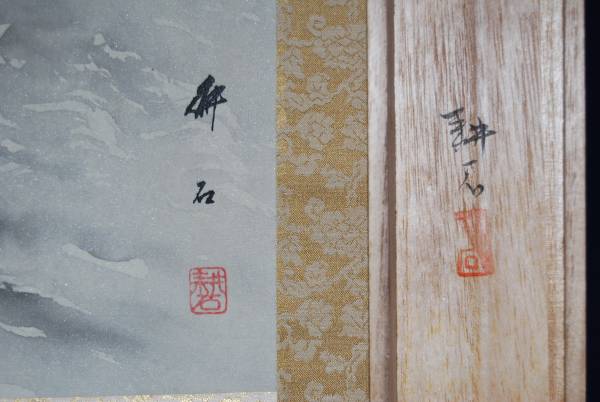 耕石
耕石
耕石